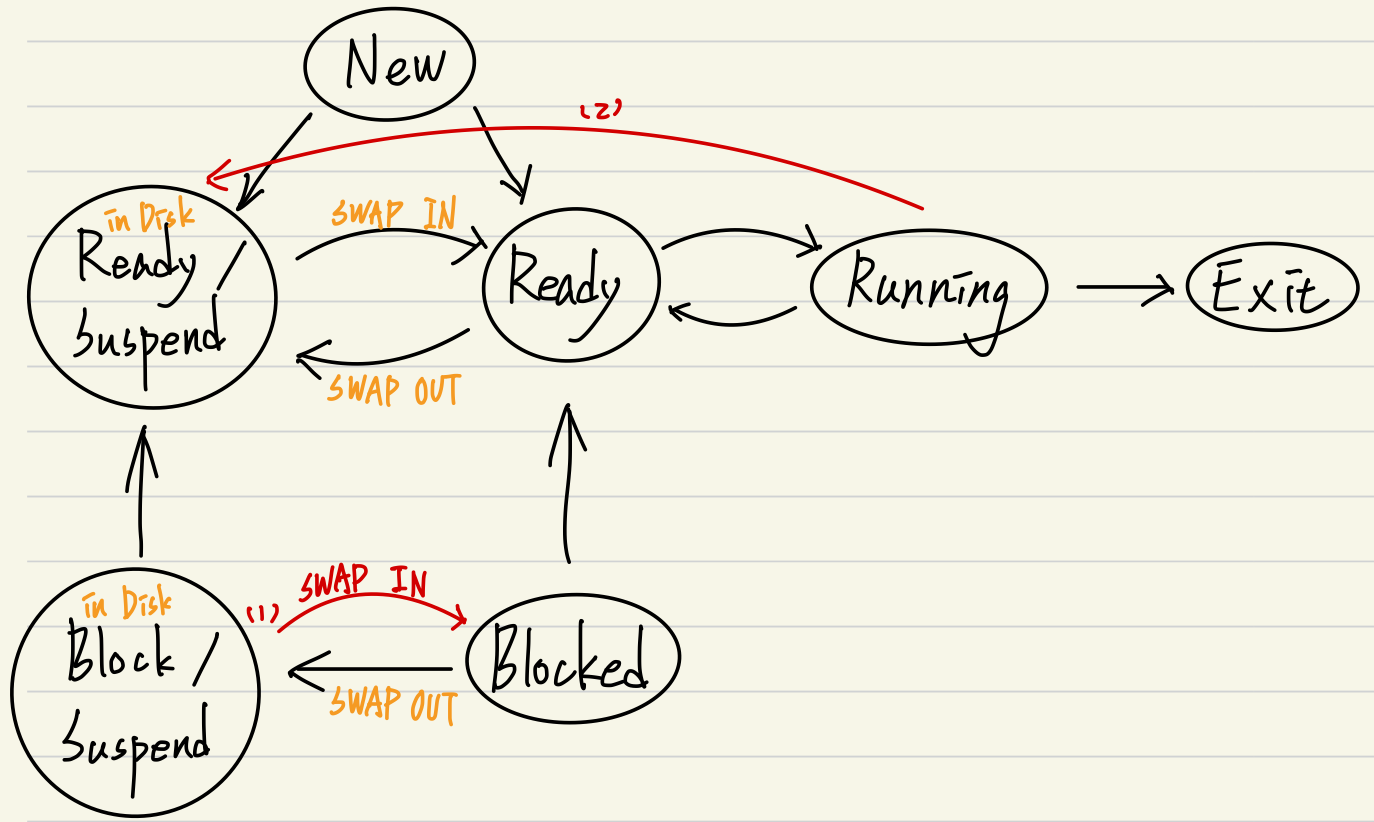 New
(2)
in Disk
Ready /
Suspend
SWAP IN
SWAP OUT
Ready
Running
Exit
in Disk
Block /
Suspend
(1)
SWAP IN
SWAP OUT
Blocked